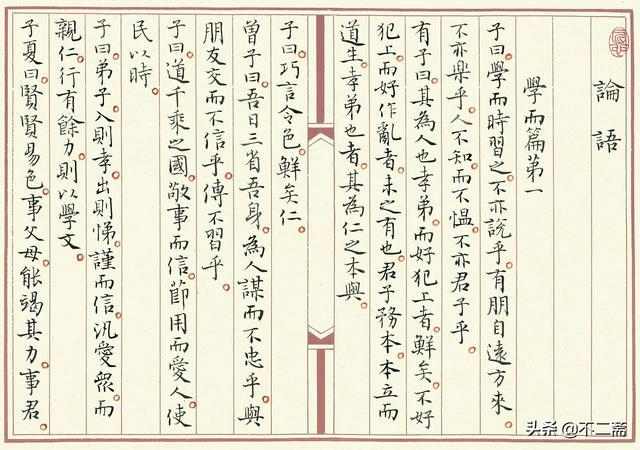 論語
學而篇第一
子曰。學而時習之。不亦說乎。有朋自遠方來。
不亦樂乎。人不知而不慍。不亦君子乎。
有子曰。其為人也孝弟。而好犯上者。鮮矣。不好
犯上。而好作亂者。未之有也。君子務本。本立而
道生。孝弟也者。其為仁之本與。
子曰。巧言令色。鮮矣仁。
曾子曰。吾日三省吾身。為人謀而不忠乎。與
朋友交而不信乎。傳不習乎。
子曰。道千乘之國。敬事而信。節用而愛人。使
民以時。
子曰。弟子入則孝。出則悌。謹而信。汎愛眾。而
親仁。行有餘力。則以學文。
子夏曰。賢賢易色。事父母。能竭其力。事君。
头条 @不二斋